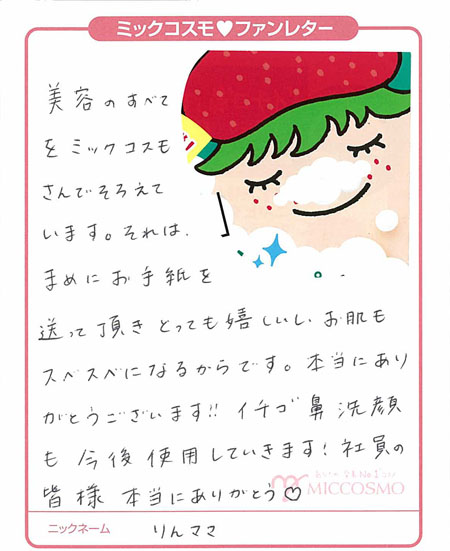 ミックコスモ♥ファンレター
美容のすべて
をミックコスモ
さんでそろえて
います。それは、
まめにお手紙を
送って頂きとっても嬉しいし、お肌も
スベスベになるからです。本当にあり
がとうございます!! イチゴ鼻洗顔
も今後使用していきます! 社員の
皆様本当にありがとう♡
MICCOSMO
ニックネーム りんママ